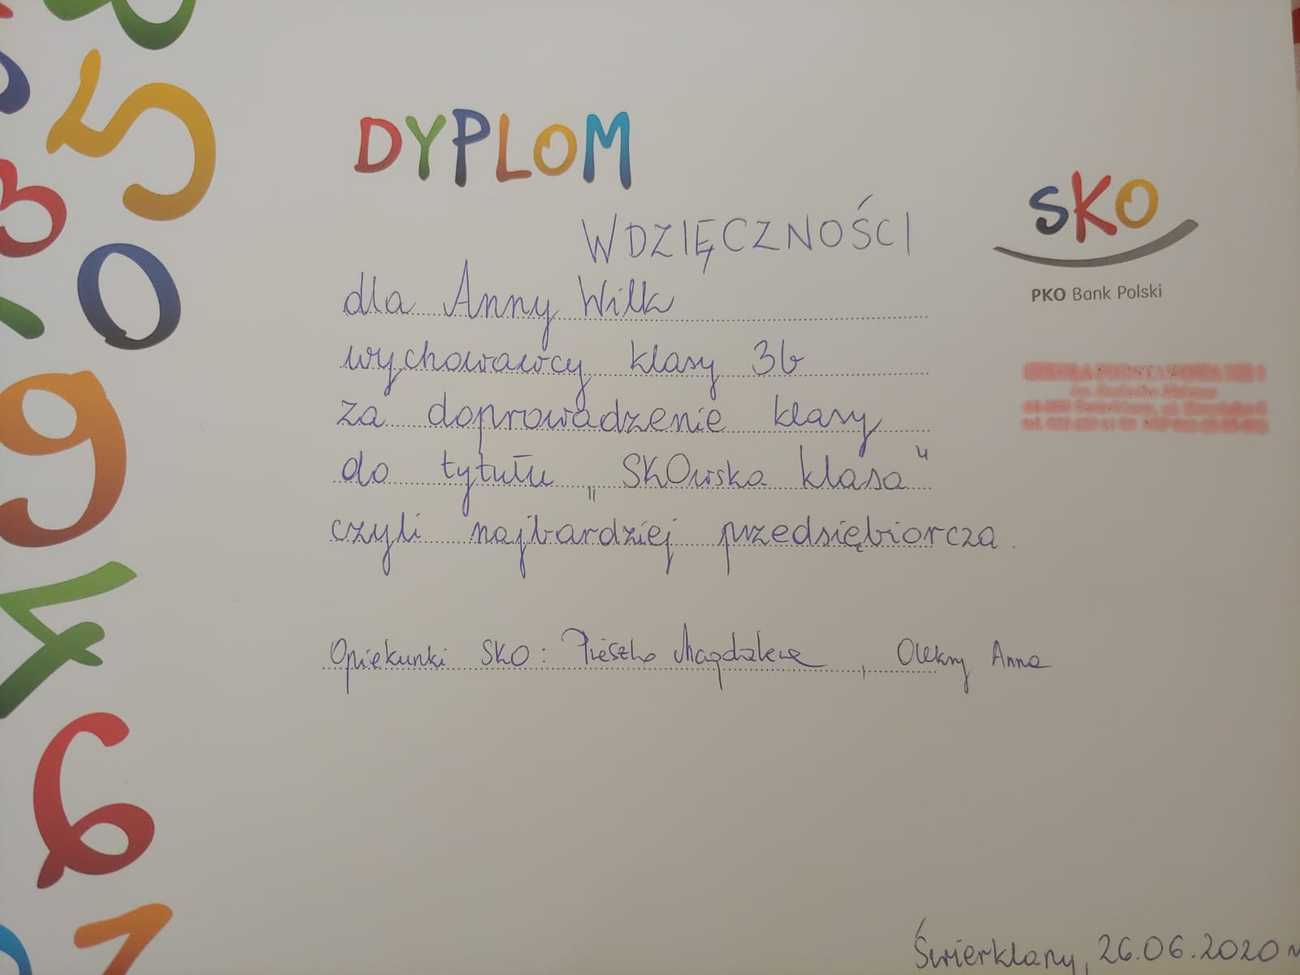 DYPLOM
WDZIĘCZNOŚCI
SKO
PKO Bank Polski
dla Anny Wilk
wychowawcy klasy 3b
za doprowadzenie klasy
do tytułu „SKOwska klasa"
czyli najbardziej przedsiębiorcza.
Opiekunki SKO: Magdalena, Anna
Świerklany, 26.06.2020 r